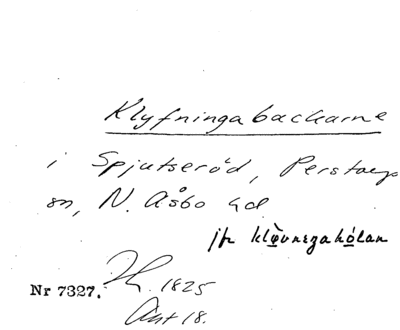 Klyfningabackarne
i Spjutseröd, Perstorps
sn, N. Åsbo hd
jfr klövnegahólan
Nr 7327.
1825
Akt 18.